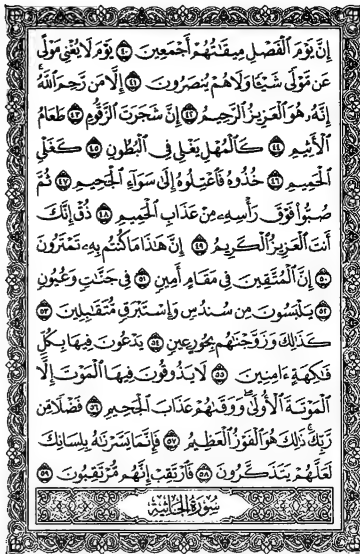 إِنَّ يَوْمَ ٱلْفَصْلِ مِيقَٰتُهُمْ أَجْمَعِينَ ٤٠ يَوْمَ لَا يُغْنِي مَوْلًى
عَن مَّوْلًى شَيْـًٔا وَلَا هُمْ يُنصَرُونَ ٤١ إِلَّا مَن رَّحِمَ ٱللَّهُ
إِنَّهُۥ هُوَ ٱلْعَزِيزُ ٱلرَّحِيمُ ٤٢ إِنَّ شَجَرَتَ ٱلزَّقُّومِ ٤٣ طَعَامُ
ٱلْأَثِيمِ ٤٤ كَٱلْمُهْلِ يَغْلِي فِي ٱلْبُطُونِ ٤٥ كَغَلْيِ
ٱلْحَمِيمِ ٤٦ خُذُوهُ فَٱعْتِلُوهُ إِلَىٰ سَوَآءِ ٱلْجَحِيمِ ٤٧ ثُمَّ
صُبُّوا۟ فَوْقَ رَأْسِهِۦ مِنْ عَذَابِ ٱلْحَمِيمِ ٤٨ ذُقْ إِنَّكَ
أَنتَ ٱلْعَزِيزُ ٱلْكَرِيمُ ٤٩ إِنَّ هَٰذَا مَا كُنتُم بِهِۦ تَمْتَرُونَ
٥٠ إِنَّ ٱلْمُتَّقِينَ فِي مَقَامٍ أَمِينٍ ٥١ فِي جَنَّٰتٍ وَعُيُونٍ
٥٢ يَلْبَسُونَ مِن سُندُسٍ وَإِسْتَبْرَقٍ مُّتَقَٰبِلِينَ ٥٣
كَذَٰلِكَ وَزَوَّجْنَٰهُم بِحُورٍ عِينٍ ٥٤ يَدْعُونَ فِيهَا بِكُلِّ
فَٰكِهَةٍ ءَامِنِينَ ٥٥ لَا يَذُوقُونَ فِيهَا ٱلْمَوْتَ إِلَّا
ٱلْمَوْتَةَ ٱلْأُولَىٰ وَوَقَىٰهُمْ عَذَابَ ٱلْجَحِيمِ ٥٦ فَضْلًا مِّن
رَّبِّكَ ذَٰلِكَ هُوَ ٱلْفَوْزُ ٱلْعَظِيمُ ٥٧ فَإِنَّمَا يَسَّرْنَٰهُ بِلِسَانِكَ
لَعَلَّهُمْ يَتَذَكَّرُونَ ٥٨ فَٱرْتَقِبْ إِنَّهُم مُّرْتَقِبُونَ ٥٩
سُورَةُ الجَاثِيَة